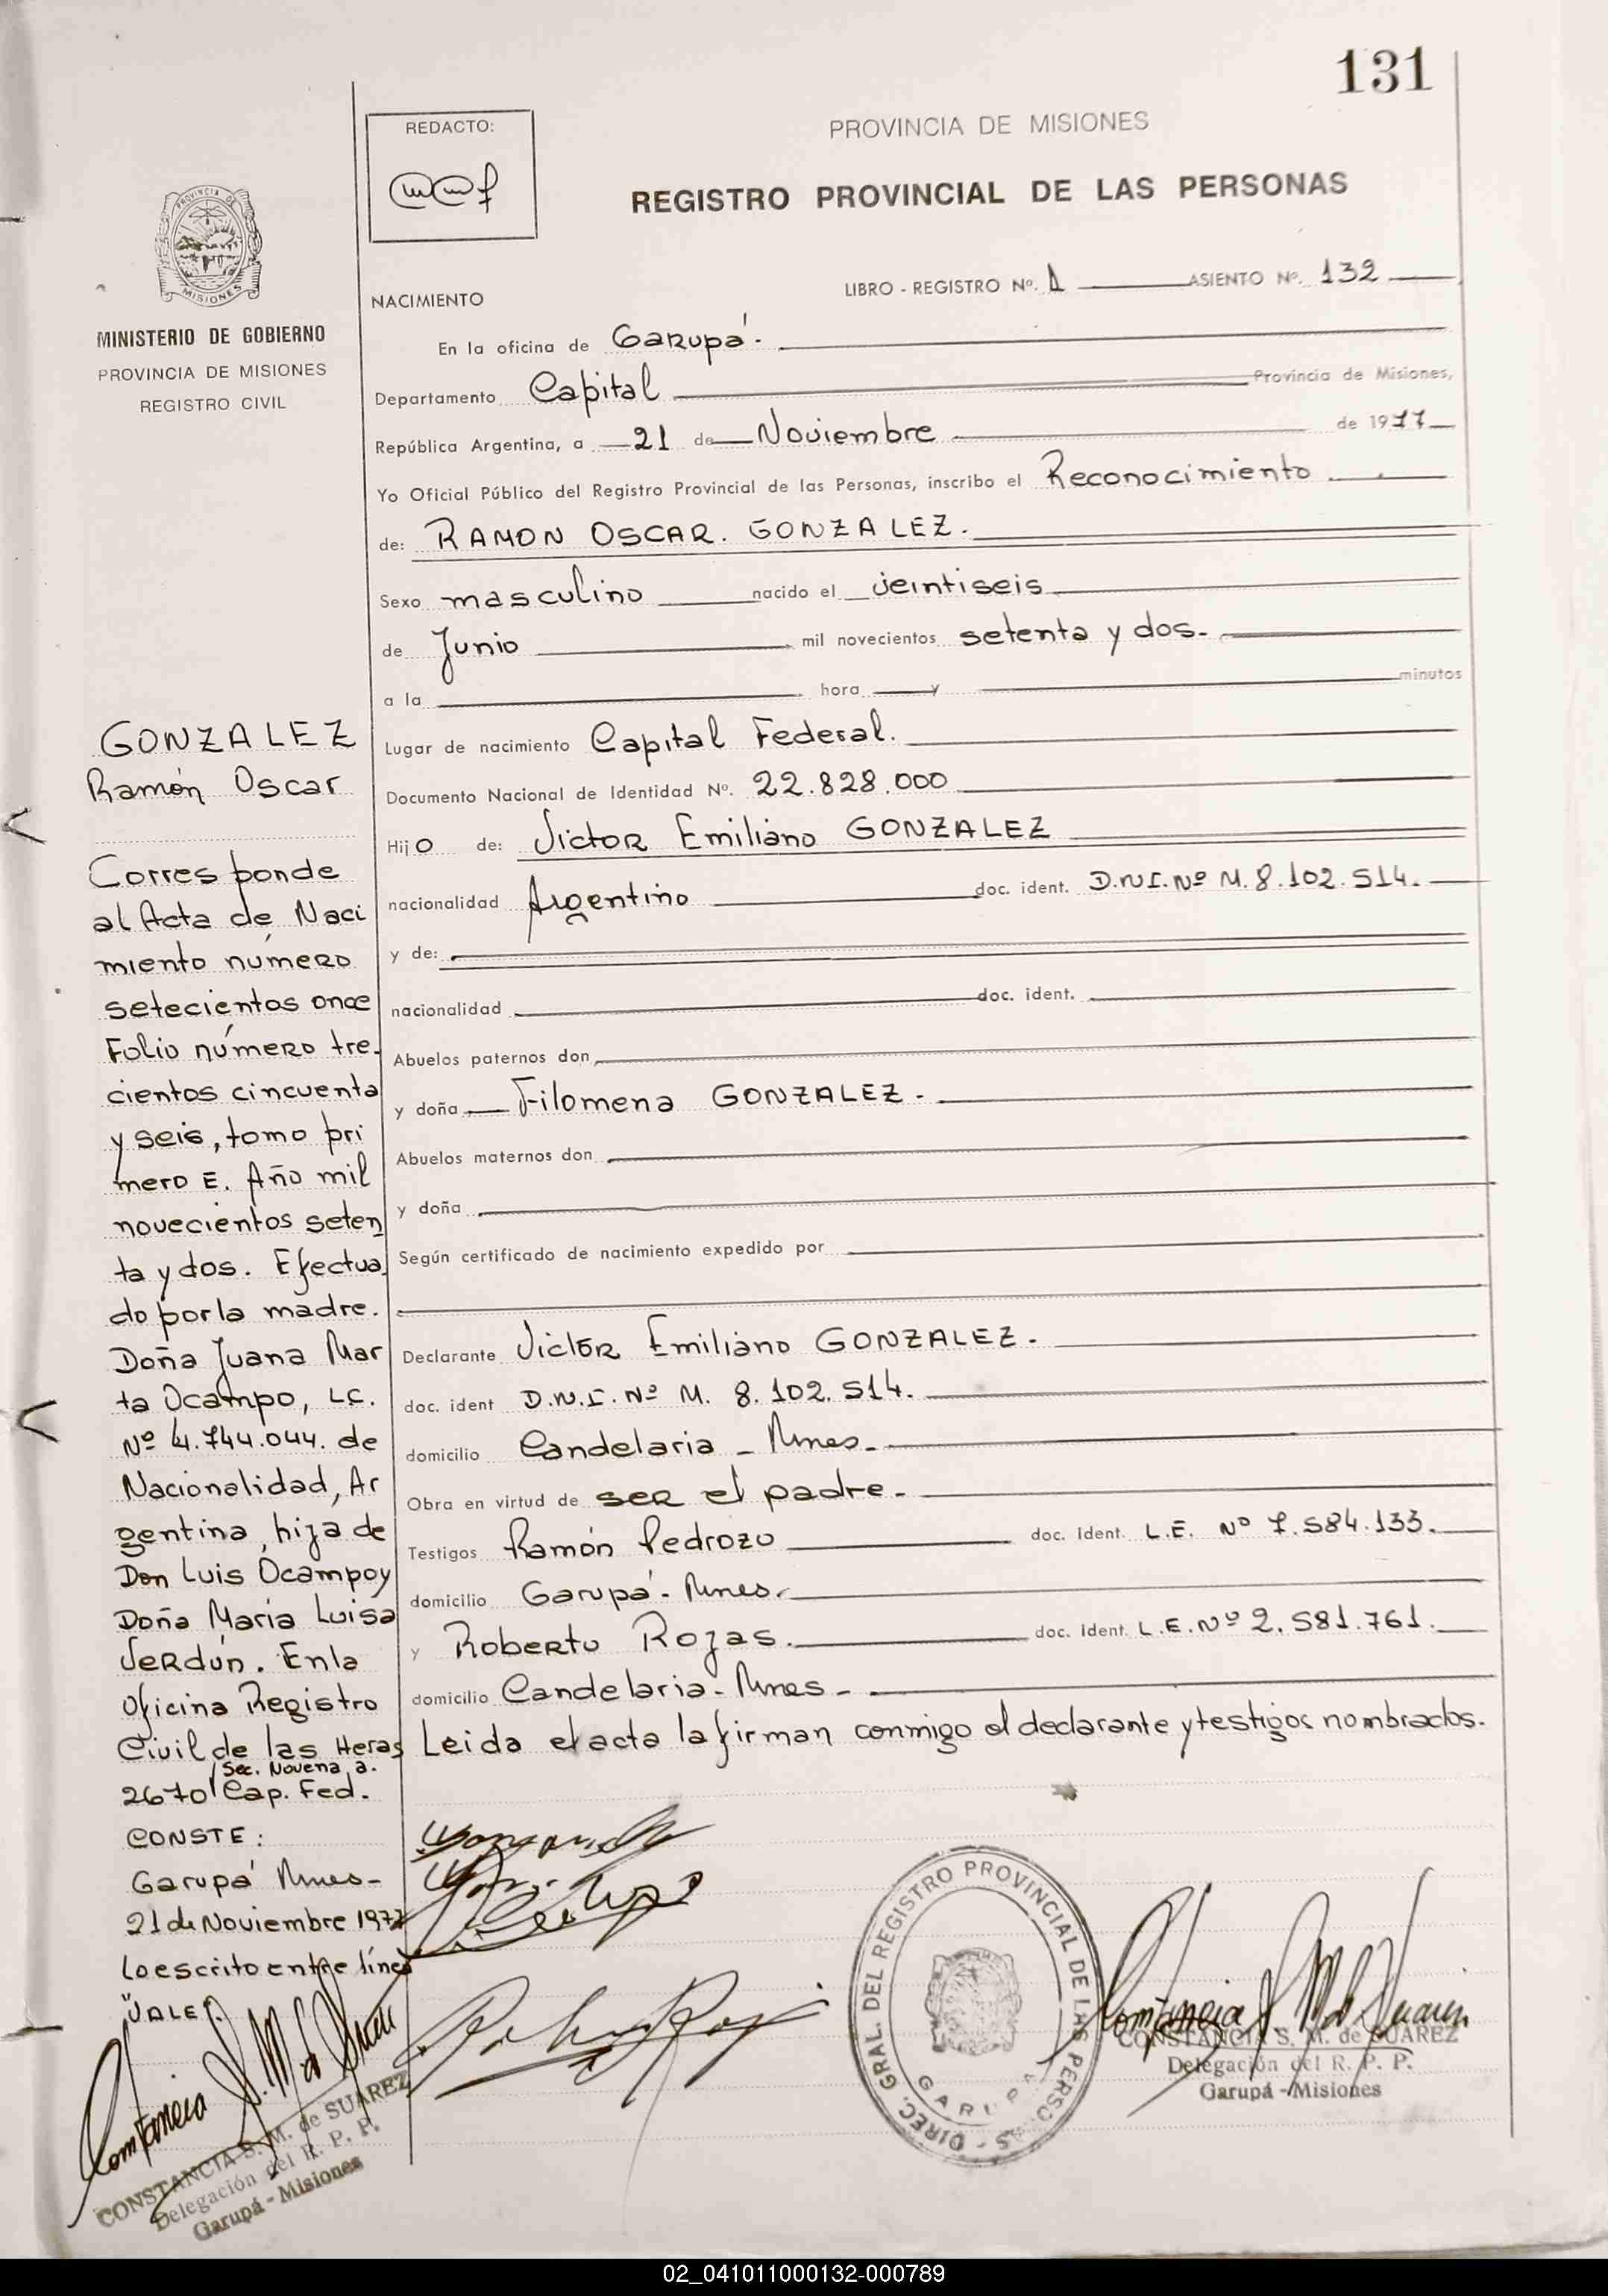 131
REDACTO:
PROVINCIA DE MISIONES
REGISTRO PROVINCIAL DE LAS PERSONAS
PROVINCIA DE
MISIONES
MINISTERIO DE GOBIERNO
PROVINCIA DE MISIONES
REGISTRO CIVIL
LIBRO - REGISTRO Nº. 1 ASIENTO Nº. 132
NACIMIENTO
En la oficina de Garupá.
Departamento Capital Provincia de Misiones,
República Argentina, a 21 de Noviembre de 1977
Yo Oficial Público del Registro Provincial de las Personas, inscribo el Reconocimiento
de: RAMON OSCAR. GONZALEZ.
Sexo masculino nacido el veintiseis
de Junio mil novecientos setenta y dos.
a la hora y minutos
Lugar de nacimiento Capital Federal.
Documento Nacional de Identidad Nº. 22.828.000
Hijo de: Victor Emiliano GONZALEZ
nacionalidad Argentino doc. ident. D.N.I. Nº M. 8.102.514.
y de:
nacionalidad doc. ident.
Abuelos paternos don
y doña Filomena GONZALEZ.
Abuelos maternos don
y doña
Según certificado de nacimiento expedido por
Declarante Victor Emiliano GONZALEZ.
doc. ident D.N.I. Nº M. 8.102.514.
domicilio Candelaria - Mnes.
Obra en virtud de ser el padre.
Testigos Ramón Pedrozo doc. Ident. L.E. Nº 7.584.133.
domicilio Garupá - Mnes.
y Roberto Rojas. doc. Ident. L.E. Nº 2.581.761.
domicilio Candelaria - Mnes -
Leida el acta la firman conmigo el declarante y testigos nombrados.
GONZALEZ
Ramón Oscar
Corresponde
al Acta de Naci
miento número
setecientos once
Folio número tre-
cientos cincuenta
y seis, tomo pri
mero E. Año mil
novecientos seten
ta y dos. Efectua
do por la madre.
Doña Juana Mar
ta Ocampo, LC.
Nº 4.744.044. de
Nacionalidad, Ar
gentina, hija de
Don Luis Ocampo y
Doña María Luisa
Verdún. En la
Oficina Registro
Civil de las Heras
Sec. Novena a.
2670 Cap. Fed.
CONSTE:
Garupá Mnes -
21 de Noviembre 1977
Lo escrito entre línea
"VALE".
CONSTANCIA S. M. de SUAREZ
Delegación del R. P. P.
Garupá - Misiones
DIREC. GRAL. DEL REGISTRO PROVINCIAL DE LAS PERSONAS -
GARUPA
CONSTANCIA S. M. de SUAREZ
Delegación del R. P. P.
Garupá - Misiones
02_041011000132-000789